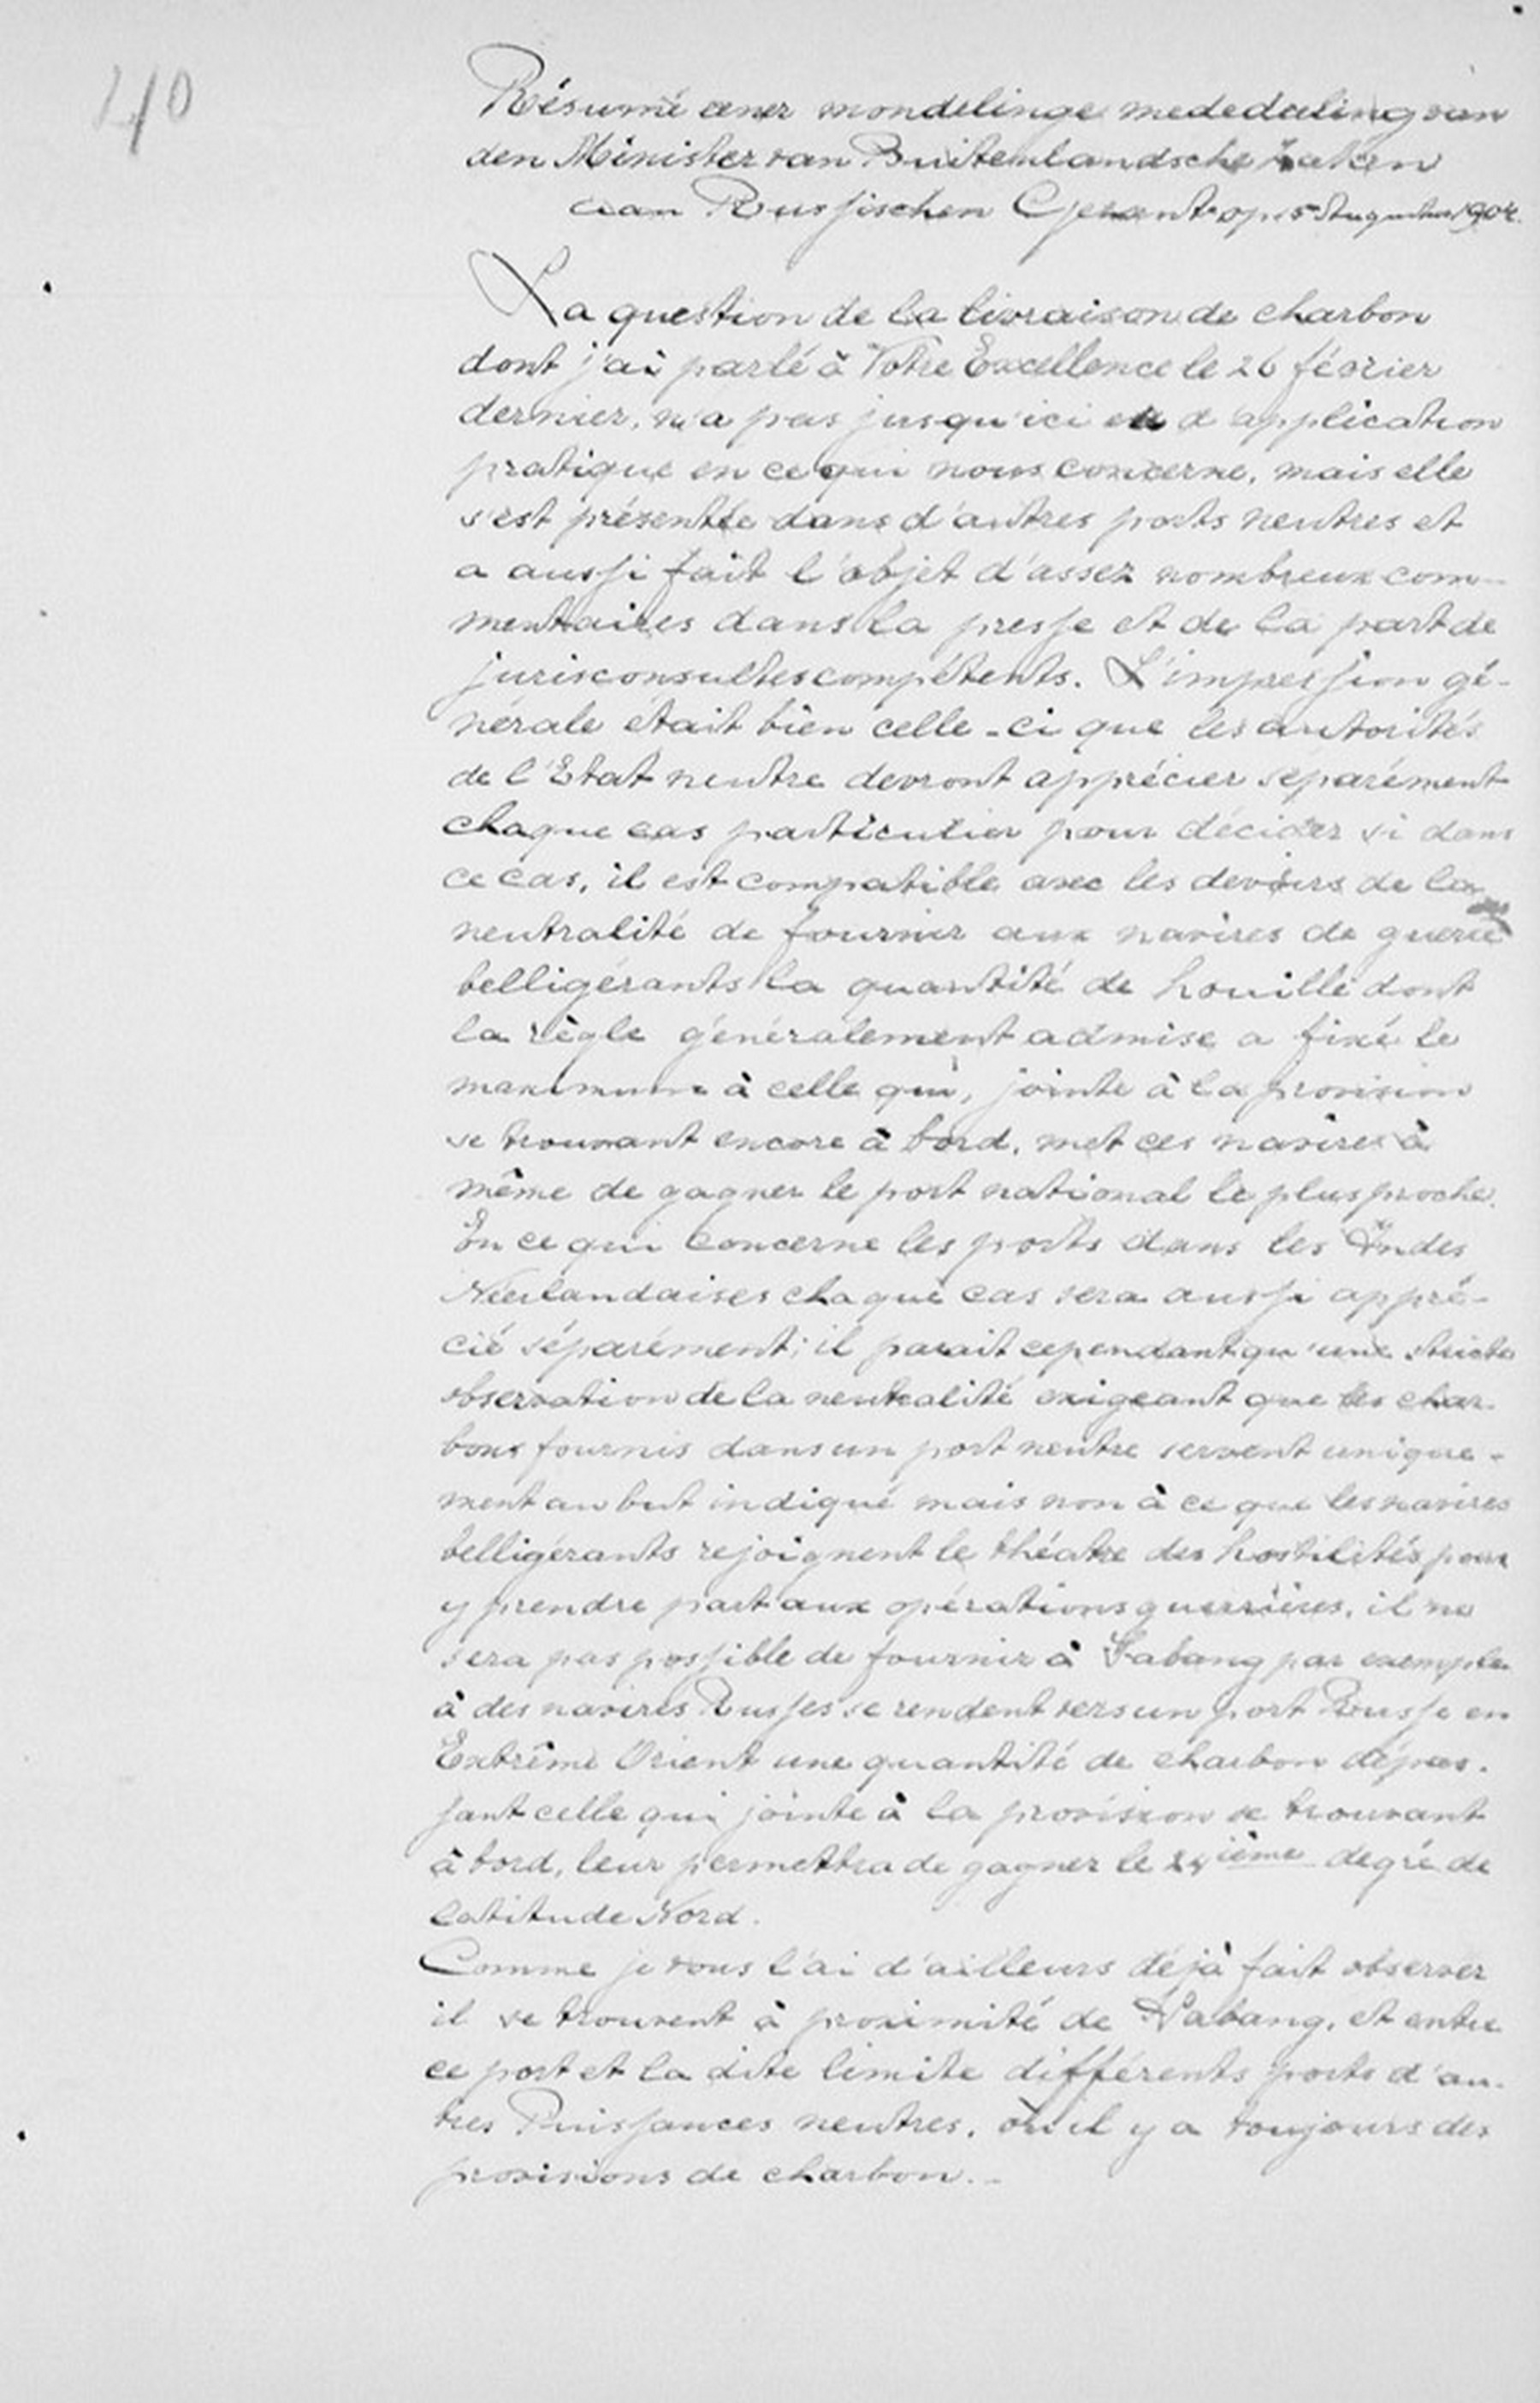 40
Résumé eener mondelinge mededeeling van
den Minister van Buitenlandsche Zaken
aan Russischen Gerant op 5 Augustus 1904.
La question de la livraison de charbon
dont j'ai parlé à Votre Excellence le 26 février
dernier, n'a pas jusqu'ici eu d'application
pratique en ce qui nous concerne, mais elle
s'est présentée dans d'autres ports neutres et
a aussi fait l'objet d'assez nombreux com-
mentaires dans la presse et de la part de
jurisconsultes compétents. L'impression gé-
nérale était bien celle-ci que les autorités
de l'Etat neutre devront apprécier séparément
chaque cas particulier pour décider si dans
ce cas, il est compatible avec les devoirs de la
neutralité de fournir aux navires de guerre
belligérants la quantité de houille dont
la règle généralement admise a fixé le
maximum à celle qui, jointe à la provision
se trouvant encore à bord, met ces navires à
même de gagner le port national le plus proche.
En ce qui concerne les ports dans les Indes
Néerlandaises chaque cas sera aussi appré-
cié séparément; il parait cependant qu'une stricte
observation de la neutralité exigeant que les char-
bons fournis dans un port neutre servent unique-
ment au but indiqué mais non à ce que les navires
belligérants rejoignent le théatre des hostilités pour
y prendre part aux opérations guerrières, il ne
sera pas possible de fournir à Sabang par exemple
à des navires Russes se rendent vers un port Russe en
Extrême Orient une quantité de charbon dépas-
sant celle qui jointe à la provision se trouvant
à bord, leur permettra de gagner le ième degré de
latitude Nord.
Comme je vous l'ai d'ailleurs déjà fait observer
il se trouvent à proximité de Sabang, et entre
ce port et la dite limite différents ports d'au-
tres Puissances neutres, où il y a toujours des
provisions de charbon.-